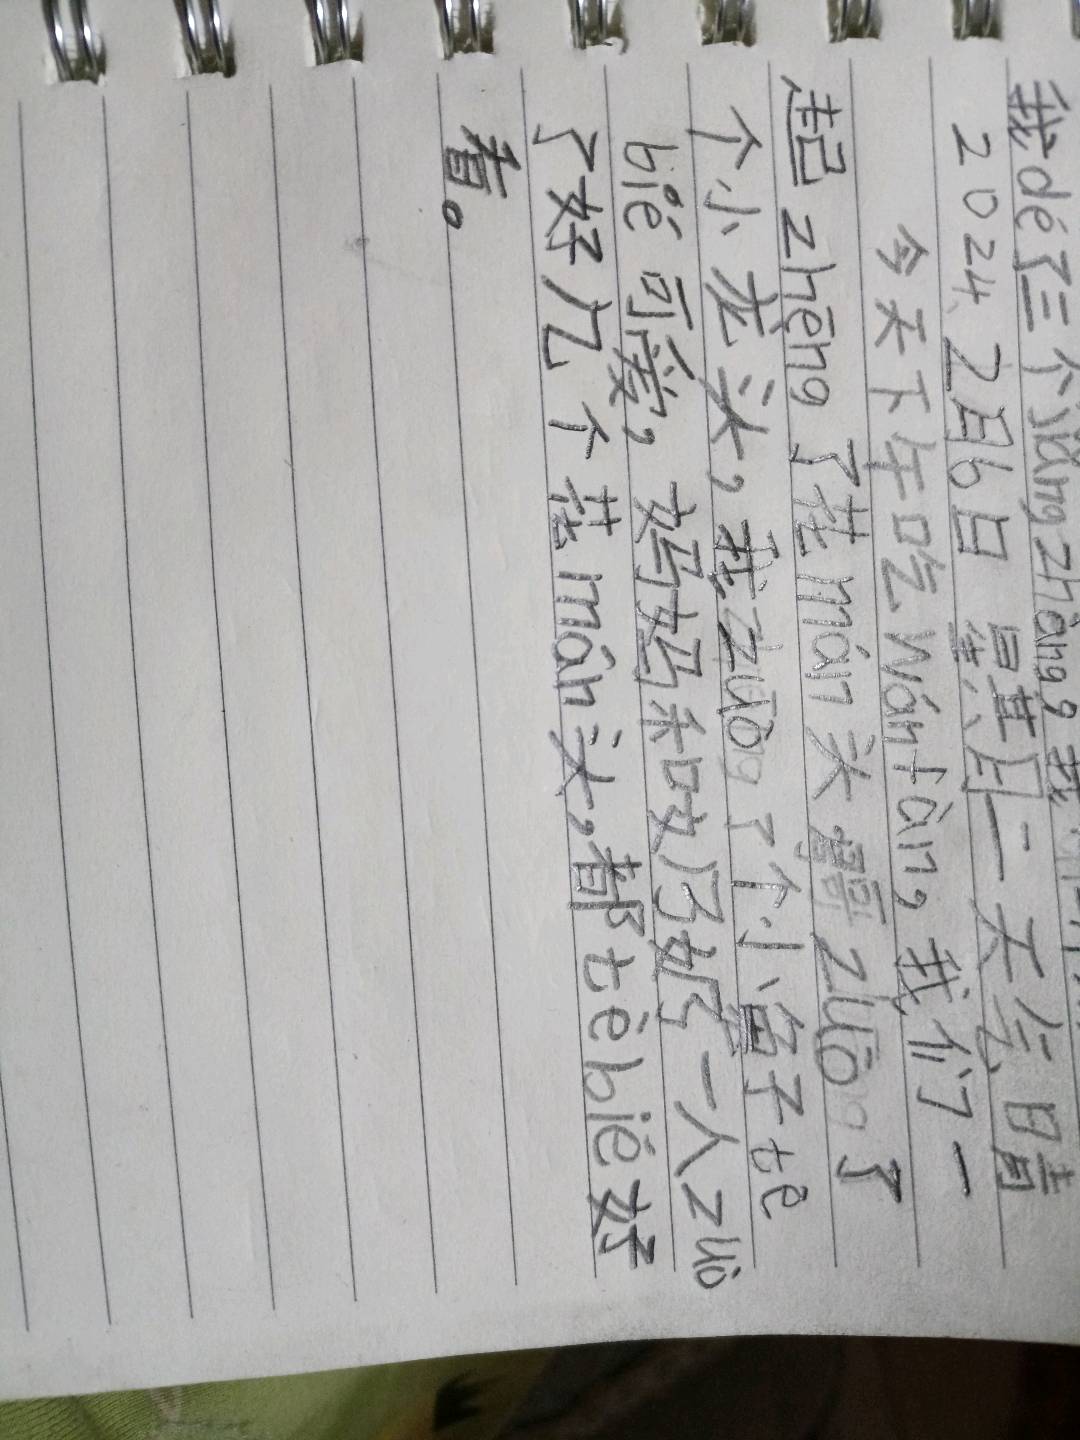 我dé了三个jiǎngzhàng，我
2024，2月6日 星其月二 天气 日青
今天下午吃wánfàn，我们一
起zhēng了花mán头哥zuō了
个小龙头，我zuō了个小兔子tè
bié可爱，妈妈和奶奶一人zuò
了好几个花mán头，都tèbié好
看。